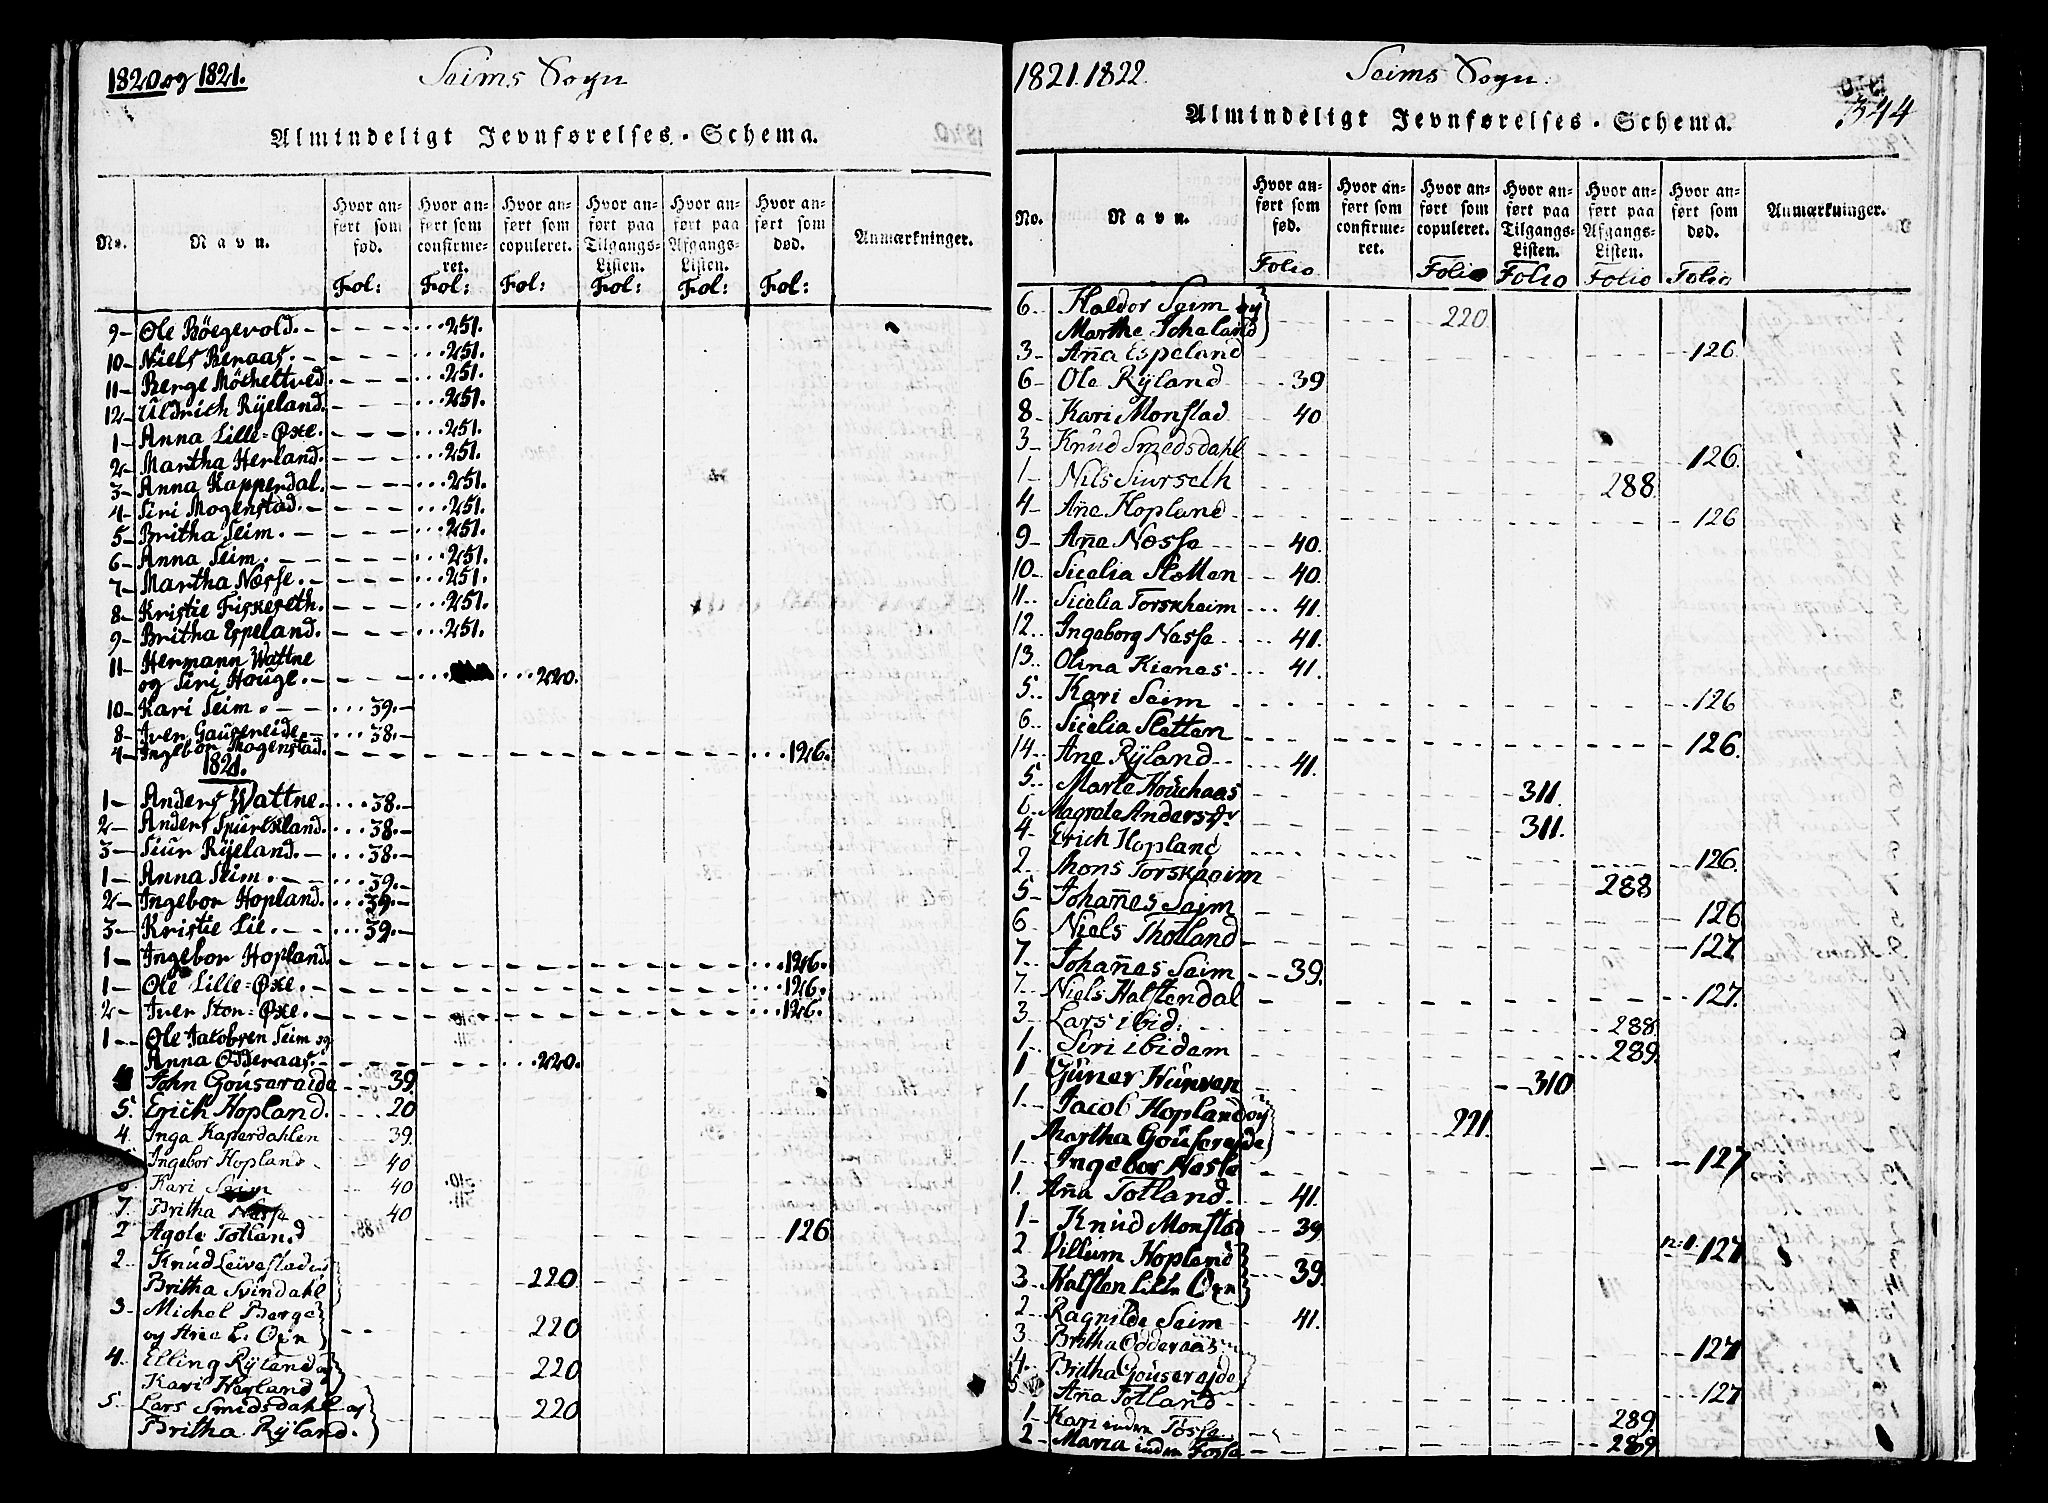 1820 og 1821.
Seims Sogn
Almindeligt Jevnførelses-Schema.
No.
Navn.
Hvor anført som fød.
Hvor anført som confirmeret.
Hvor anført som copuleret.
Hvor anført paa Tilgangs-Listen.
Hvor anført paa Afgangs-Listen.
Hvor anført som død.
Anmærkninger.
Fol: Fol: Fol: Fol: Fol: Fol:
9 - Ole Böegevold. - - - - ...251.
10 - Niels Beraas. - - - - ...251.
11 - Berge Möcheltved. - - - ...251.
12 - Uldrich Ryeland. - - - ...251.
1 - Anna Lille=Øxe. - - - ...251.
2 - Martha Herland. - - - ...251.
3 - Anna Kappendal. - - - ...251.
4 - Siri Mogenstad. - - - ...251.
5 - Britha Seim. - - - - ...251.
6 - Anna Seim. - - - - ...251.
7 - Martha Næsse. - - - - ...251.
8 - Kristie Fiskeseth. - - - ...251.
9 - Britha Espeland. - - - ...251.
11 - Hermann Wattne
og Siri Hougl. - - - - ...220.
10 - Kari Seim. - - - ...39. -
8 - Iver Gausereide. - ...38. -
4 - Ingebor Mogenstad. - - - - ...126.
1821.
1 - Anders Wattne. ...38. -
2 - Anders Spurkeland. ...38. -
3 - Siur Ryeland. - ...38. -
1 - Anna Seim. - ...39. -
2 - Ingebor Hopland. ...39. -
3 - Kristie Lie. - - ...39. -
1 - Ingebor Hopland. - - - - ...126.
1 - Ole Lille=Øxe. - - - - ...126.
2 - Iver Stor=Øxe. - - - - ...126.
1 - Ole Jacobsen Seim og
Anna Odderaas. - - - - ...220.
John Gousaraide - - 39
5. Erich Hopland. - - 20
4. Inga Kaperdahlen - - 39
Ingebor Hopland - - 40
Kari Seim - - 40
7. Britha Næsse - - 40
2 Agote Totland - - - - 126
2. Knud
Britha Svindahl - - 220
3. Michel Berge
og Ane L. Oxn - - 220
4. Elling Ryland og
Kari Herland 220
5. Lars Smidsdahl og
Britha Ryland. - - 220
1821. 1822.
Seims Sogn.
344
Almindeligt Jevnførelses-Schema.
No.
Navn.
Hvor anført som fød.
Hvor anført som confirmeret.
Hvor anført som copuleret.
Hvor anført paa Tilgangs-Listen.
Hvor anført paa Afgangs-Listen.
Hvor anført som død.
Anmærkninger.
Folio Folio Folio Folio Folio
6. Haldor Seim og
Marthe - - - 220
3 - Aña Espeland - - - - 126.
6 - Ole Ryland - - 39
8 - Kari Monstad 40
3 - Knud Smedsdahl - - - - 126.
1 - Nils Siurseth - - - - 288.
4 - Añe Hopland - - - - 126
9 - Aña Næsse - - - - 40.
10 - Sicelia Sletten - - 40.
11.. Sicelia Torskheim ... 41.
12.. Ingeborg Nasse ... 41.
13.. Olina Kienas - - 41.
5.. Kari Seim - - - - 126
6.. Sicelia Sletten - - - - 126.
14.. Ane Ryland - - - 41.
5. Marte Kouchaas - - - 311.
6. Magrete Andersdr - - - 311.
4 - Erich Hopland - - - - 126.
2. Mons Torskheim - - - 288
5 - Johañes Seim - - - - 126
6 - Niels Thotland - - - - 127.
7 - Johañes Seim - - 39.
7.. Niels Halstendal - - - - 127.
3 - Lars ibid: - - - - 288.
1.. Siri ibidem - - - - 289.
1 Guner Hunven - - - 310
1.. Jacob Hopland og
Martha Gouseraide - - - 221.
1. Ingebor Nasse - - - - 127
1. Aña Totland. - - 41.
1 - Knud Monstad - - 39
2. Villum Hopland - - n:1. 127
3. Halsten Lille Oxn - - 39.
2 - Ragnilde Seim - - 41.
3 - Britha Odderaas - - - - 127
4. Britha Gouseraide
5 Aña Totland - - - - 127
1 - Kari inden Fossa - - - - 289.
2 - Maria inden Fossa - - - - 289